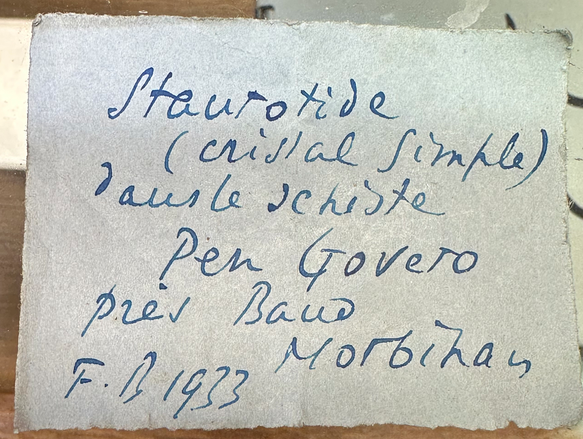 Staurotide
(cristal simple)
dans le schiste
Pen Govero
près Baud
Morbihan
F. B 1933